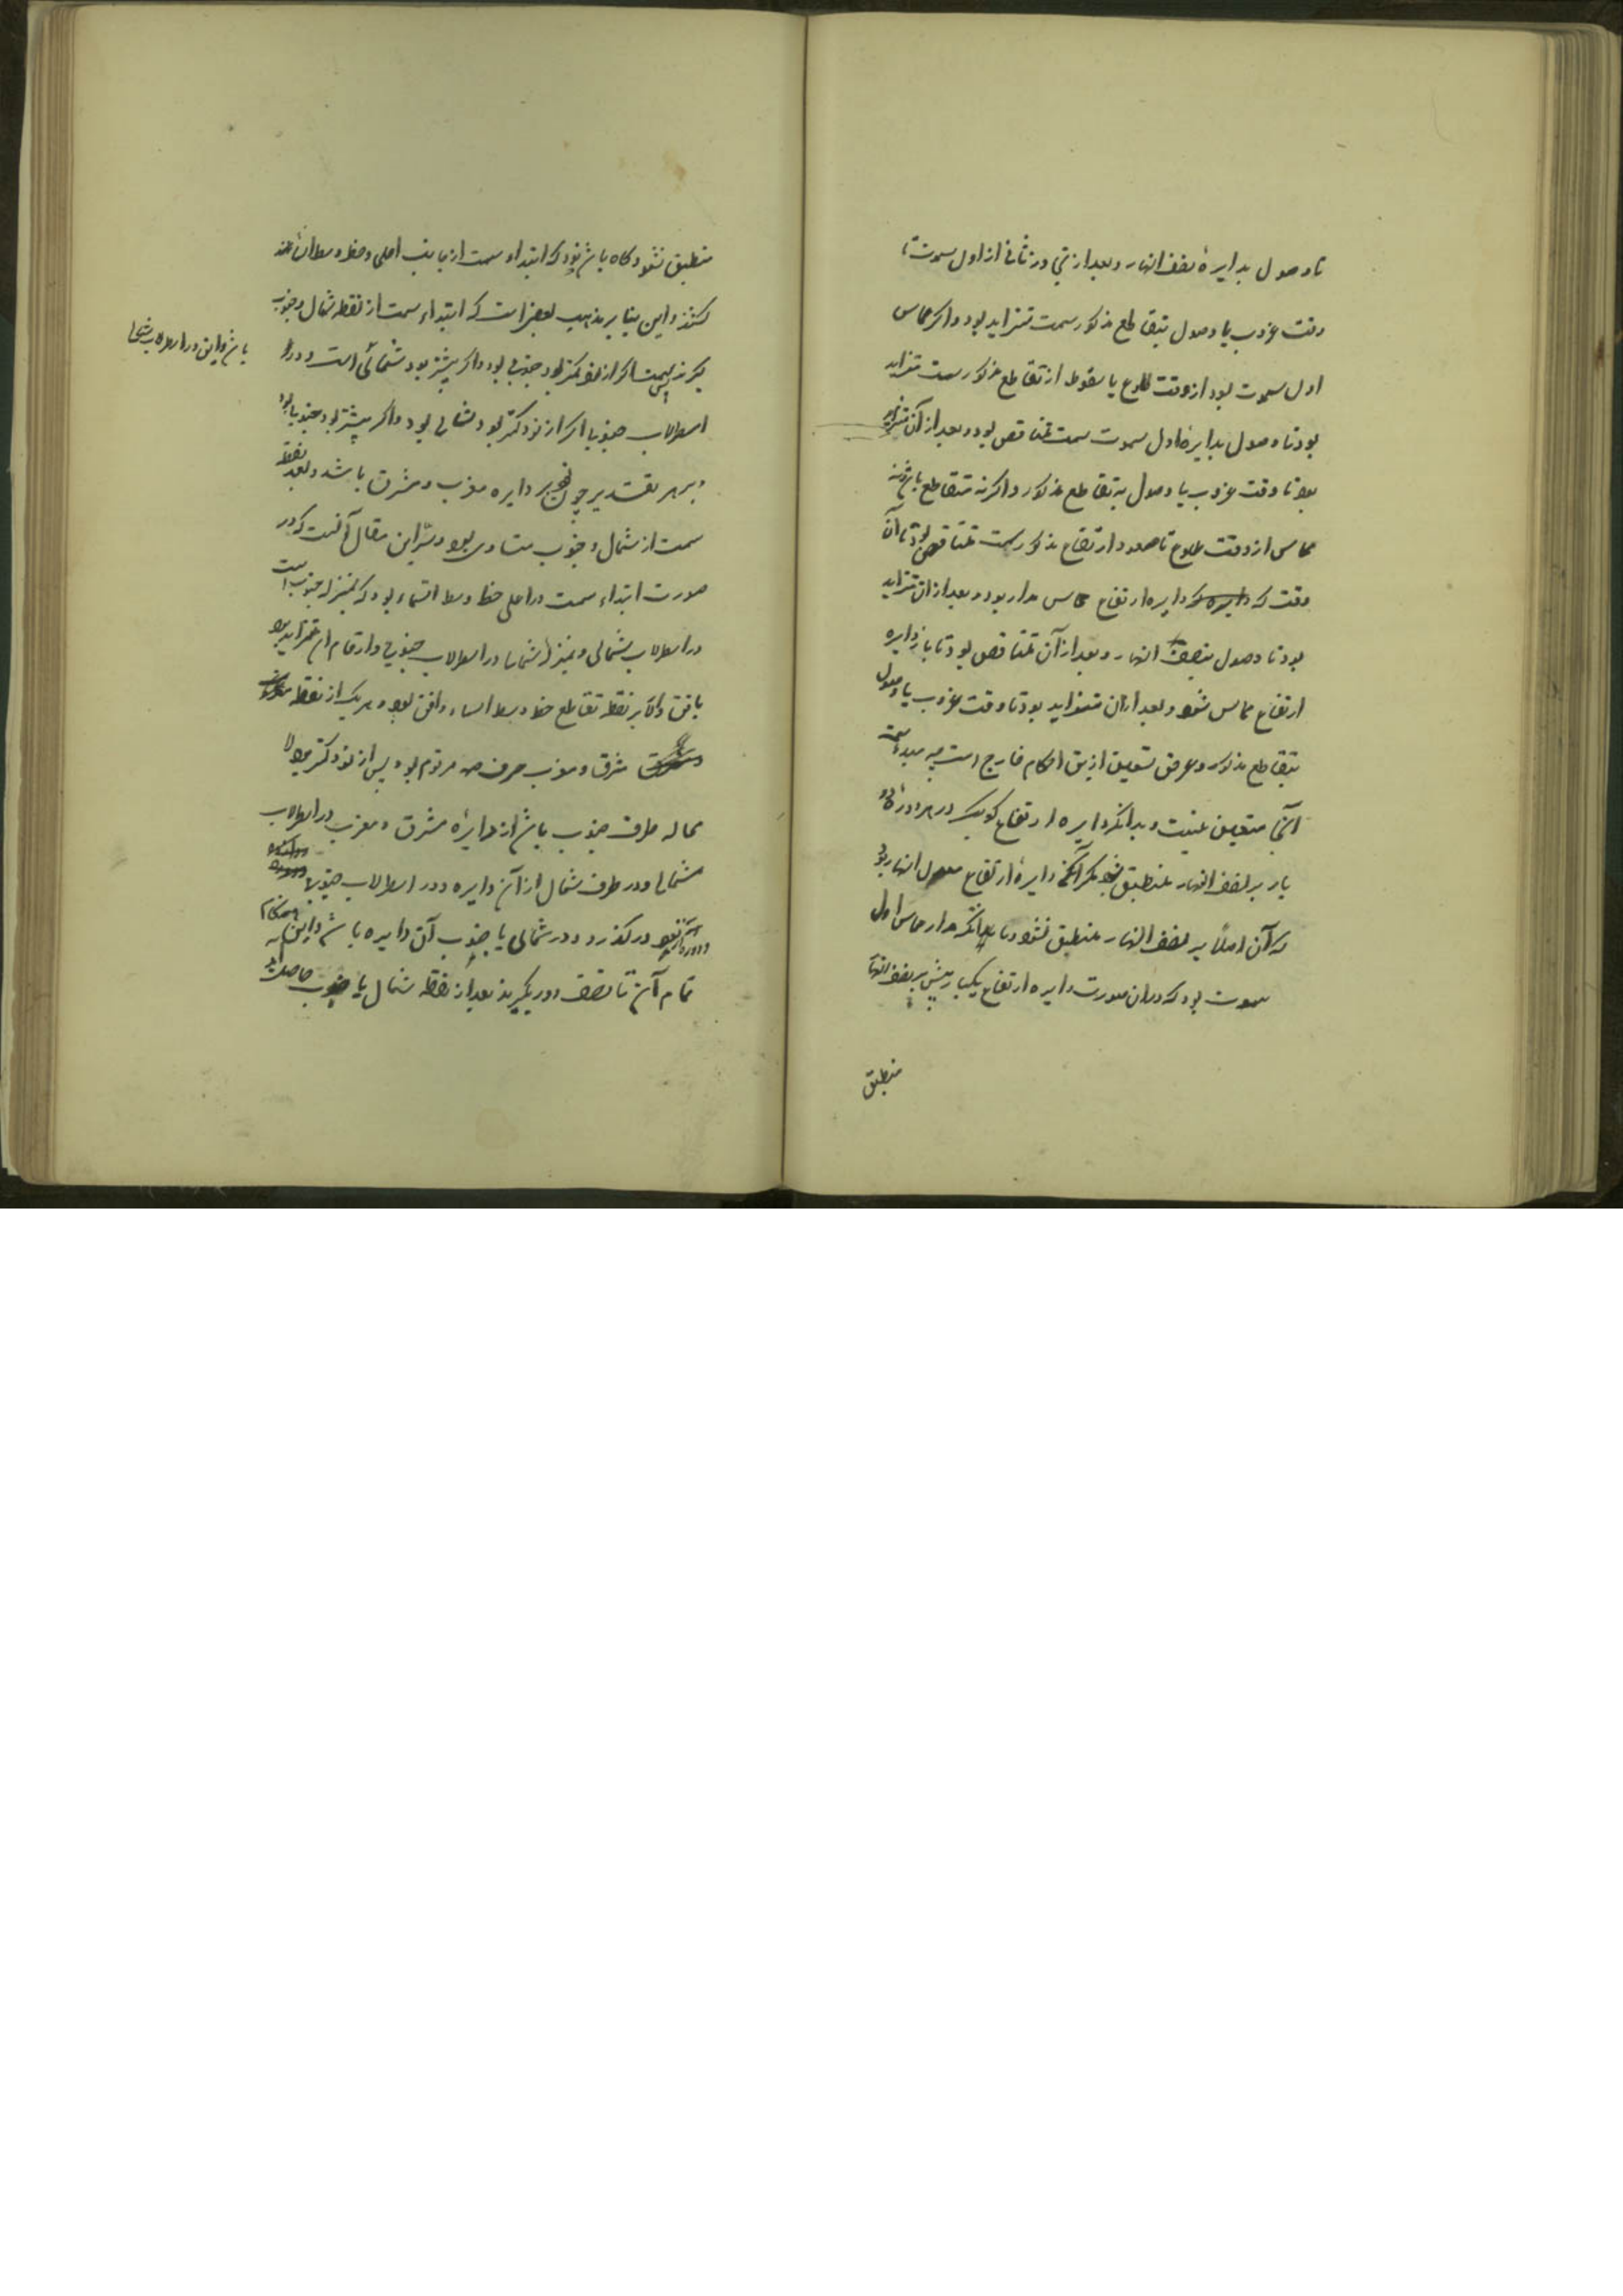 تا وصول بدایرهٔ نصف النهار و بعد از تجاوز ثانی از اول سموت تا
وقت غروب یا وصول بتقاطع مذکور سمت متزاید بود و اگر مماس
اول سموت بود از وقت طلوع یا سقوط از تقاطع مذکور سمت متزاید
بود تا وصول بدایره اول سموت سمت متناقص بود و بعد از آن متزاید
بود تا وقت غروب یا وصول به تقاطع مذکور و اگر نه متقاطع باشد و نه
مماس از وقت طلوع تا صعود ارتفاع مذکور سمت متناقص بود تا آن
وقت که دایره ارتفاع مماس مدار بود و بعد از ان متزاید
بود تا وصول بنصف النهار و بعد از آن متناقص بود تا باز دایره
ارتفاع مماس شود و بعد از ان متزاید بود تا وقت غروب یا وصول
بتقاطع مذکور و عرض تسعین ازین احکام خارج است چه مبدا سمت
آنجا متعین نیست و بدانکه دایره ارتفاع کوکب در هر دوره دو
بار بر نصف النهار منطبق شود مگر آنکه دایرهٔ ارتفاع معدل النهار بود
که آن اصلاً بر نصف النهار منطبق نشود و یا آنکه مدار مماس اول
سموت بود که در ان صورت دایره ارتفاع یکبار بیش بر نصف النهار
منطبق
منطبق نشود و گاه باشد که ابتداء سمت از جانب اعلی خط وسط السماء
کنند و این بنابر مذهب بعضی است که ابتداء سمت از نقطه شمال و جنوب
گیرند پس سمت اگر از نود کمتر بود جنوبی بود و اگر بیشتر بود شمالی است و در
اسطرلاب جنوبی اگر از نود کمتر بود شمالی بود و اگر بیشتر بود جنوبی بود
و بر هر تقدیر چون بر دایره مغرب و مشرق باشد و بعد نقطه
سمت از شمال و جنوب متساوی بود و سر این مقال آنست که در
صورت ابتداء سمت در اعلی خط وسط السماء بود که بمنزله جنوب است
در اسطرلاب شمالی و بمنزلهٔ شمال در اسطرلاب جنوبی و ارقام آن متزاید بود
با فق و اگر بر نقطه تقاطع خط وسط السماء و افق بود و هر یک از نقطه
مشرق و مغرب حرف ص مرقوم بود پس از نود کمتر بود لا
محاله طرف جنوب باشد از دایرهٔ مشرق و مغرب در اسطرلاب
شمالی و در طرف شمال از آن دایره در اسطرلاب جنوبی
در گذرد و در شمالی یا جنوب آن دایره باشد و این هنگام
تمام آن تا نصف دور بگیرند بعد از نقطه شمال یا جنوب حاصل آید
باشد و این در اسطرلاب شمالی